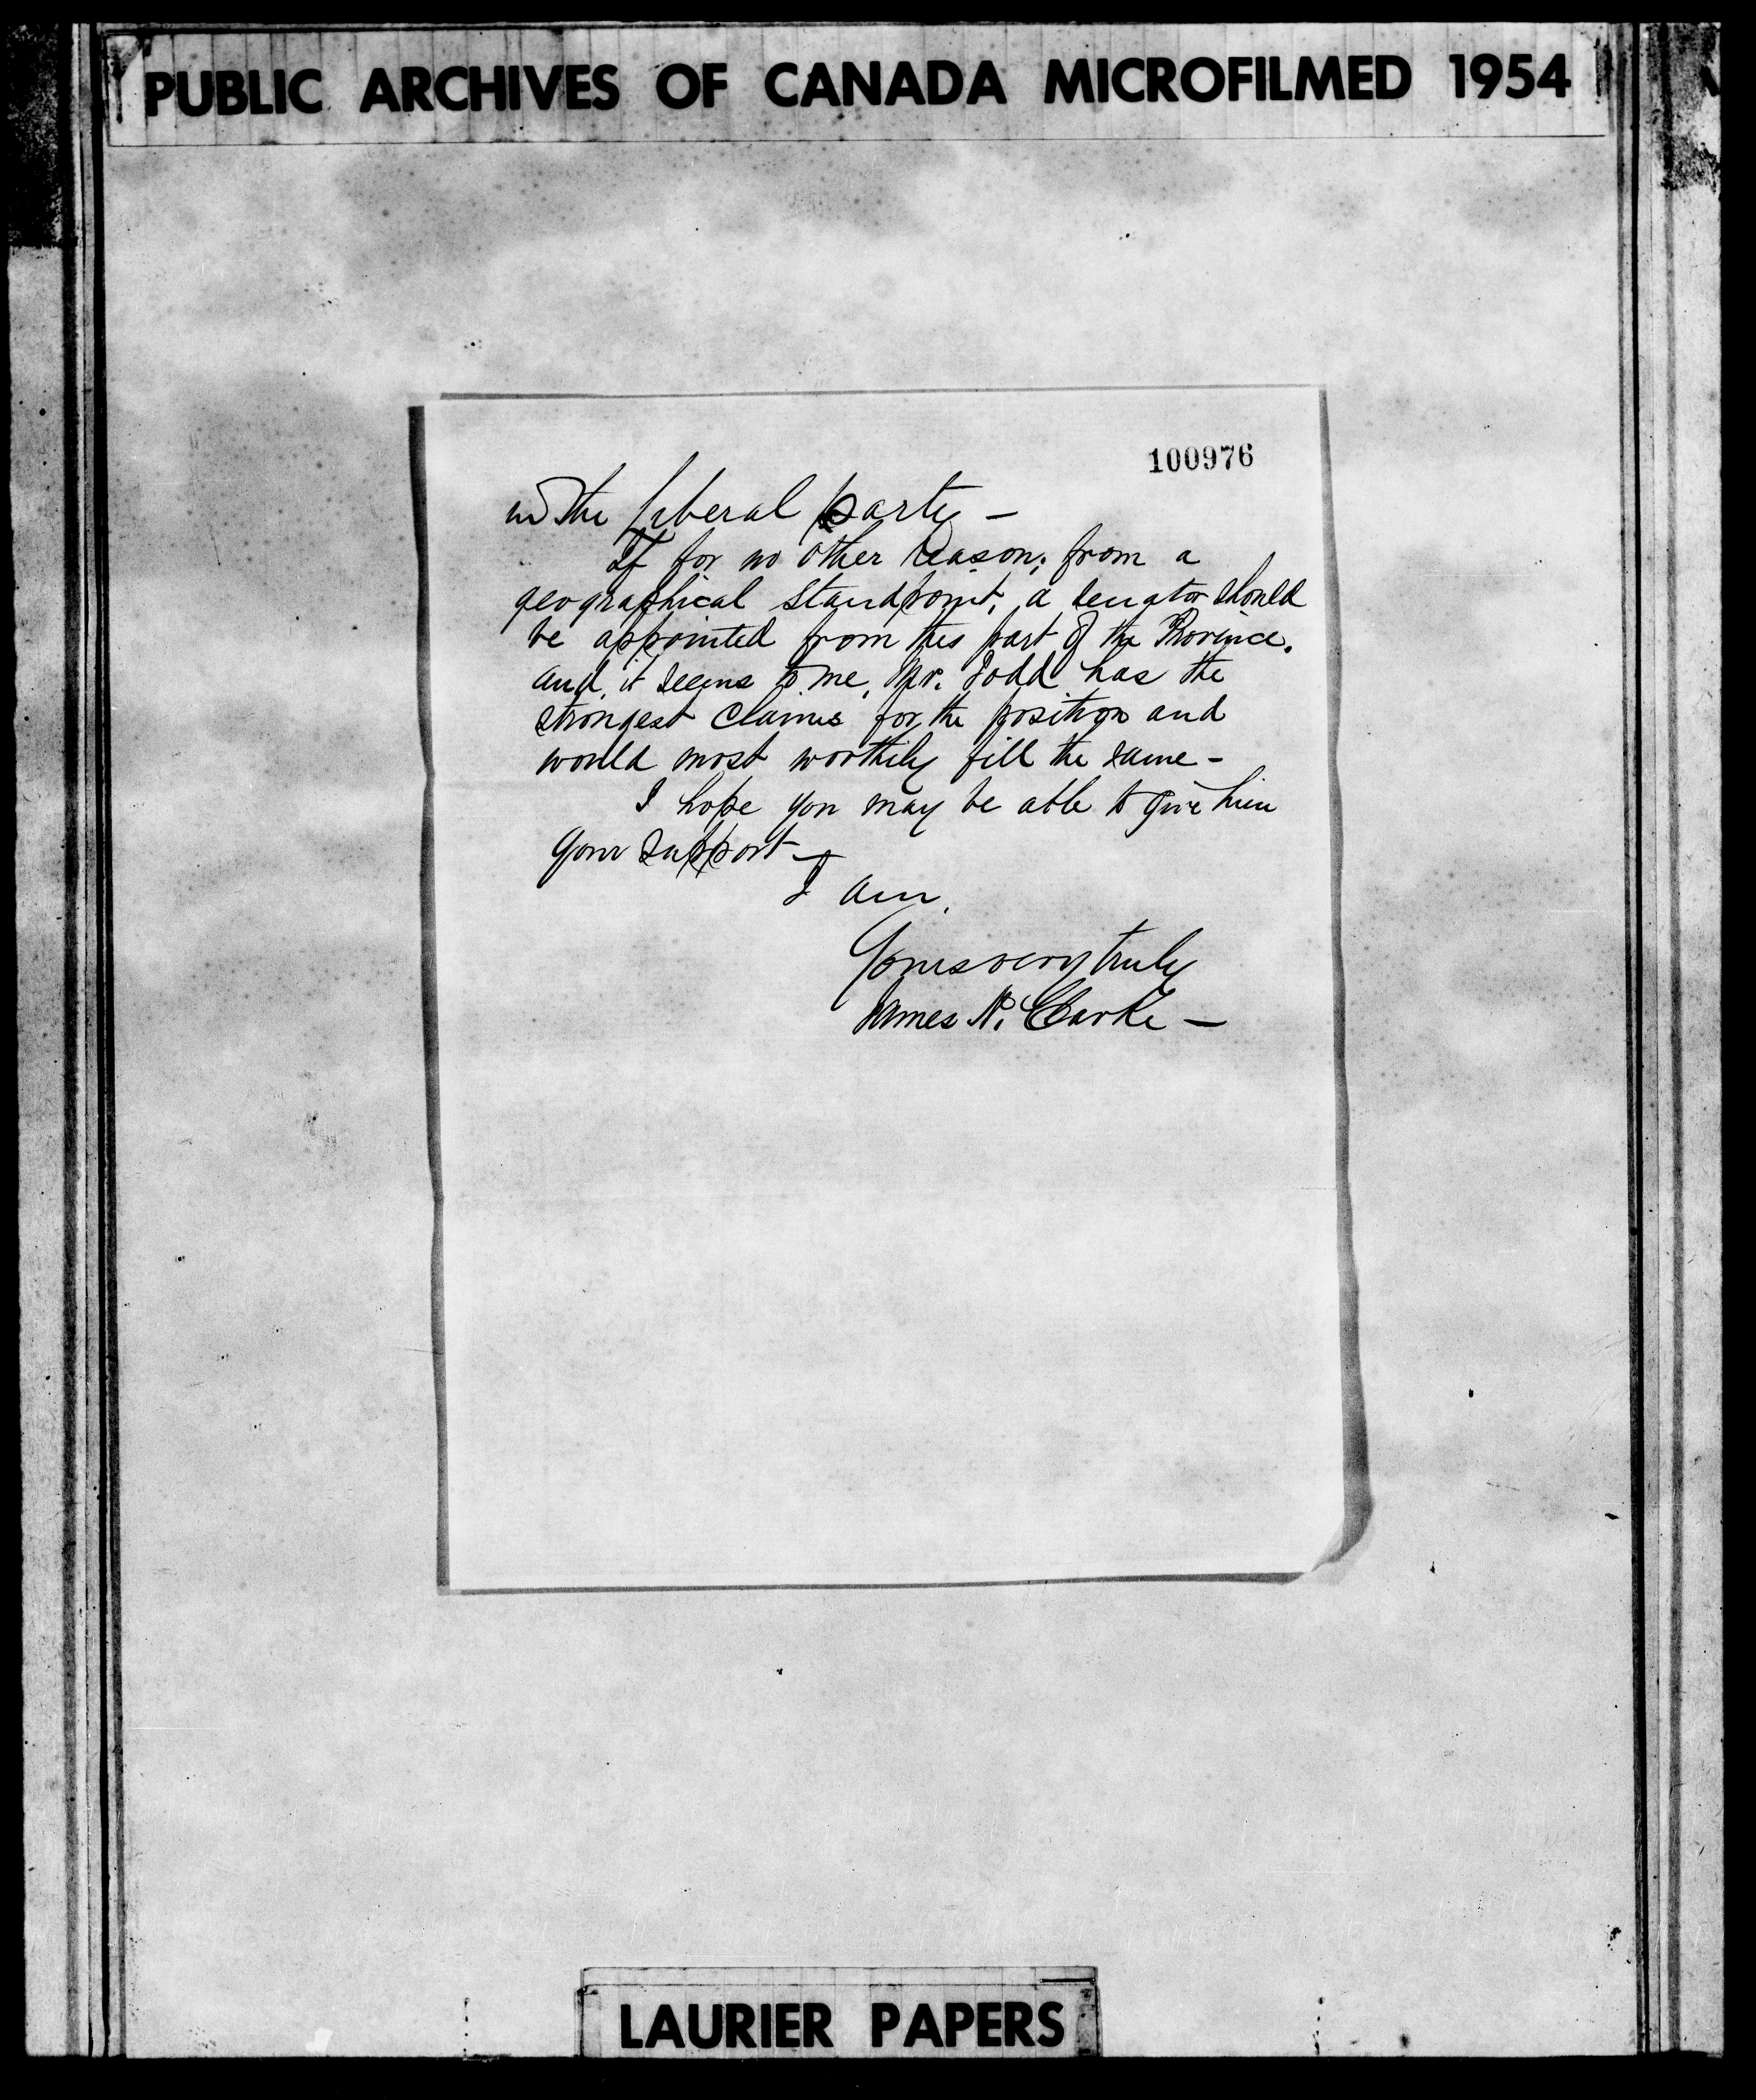 PUBLIC ARCHIVES OF CANADA MICROFILMED 1954
100976
in the liberal party –
If for no other reason; from a
geographical standpoint, a senator should
be appointed from this part of the Province.
and, it seems to me, Mr. Todd has the
strongest claims for the position and
would most worthily fill the same –
I hope you may be able to give him
your support –
I am,
Yours very truly
James N. Clarke –
LAURIER PAPERS